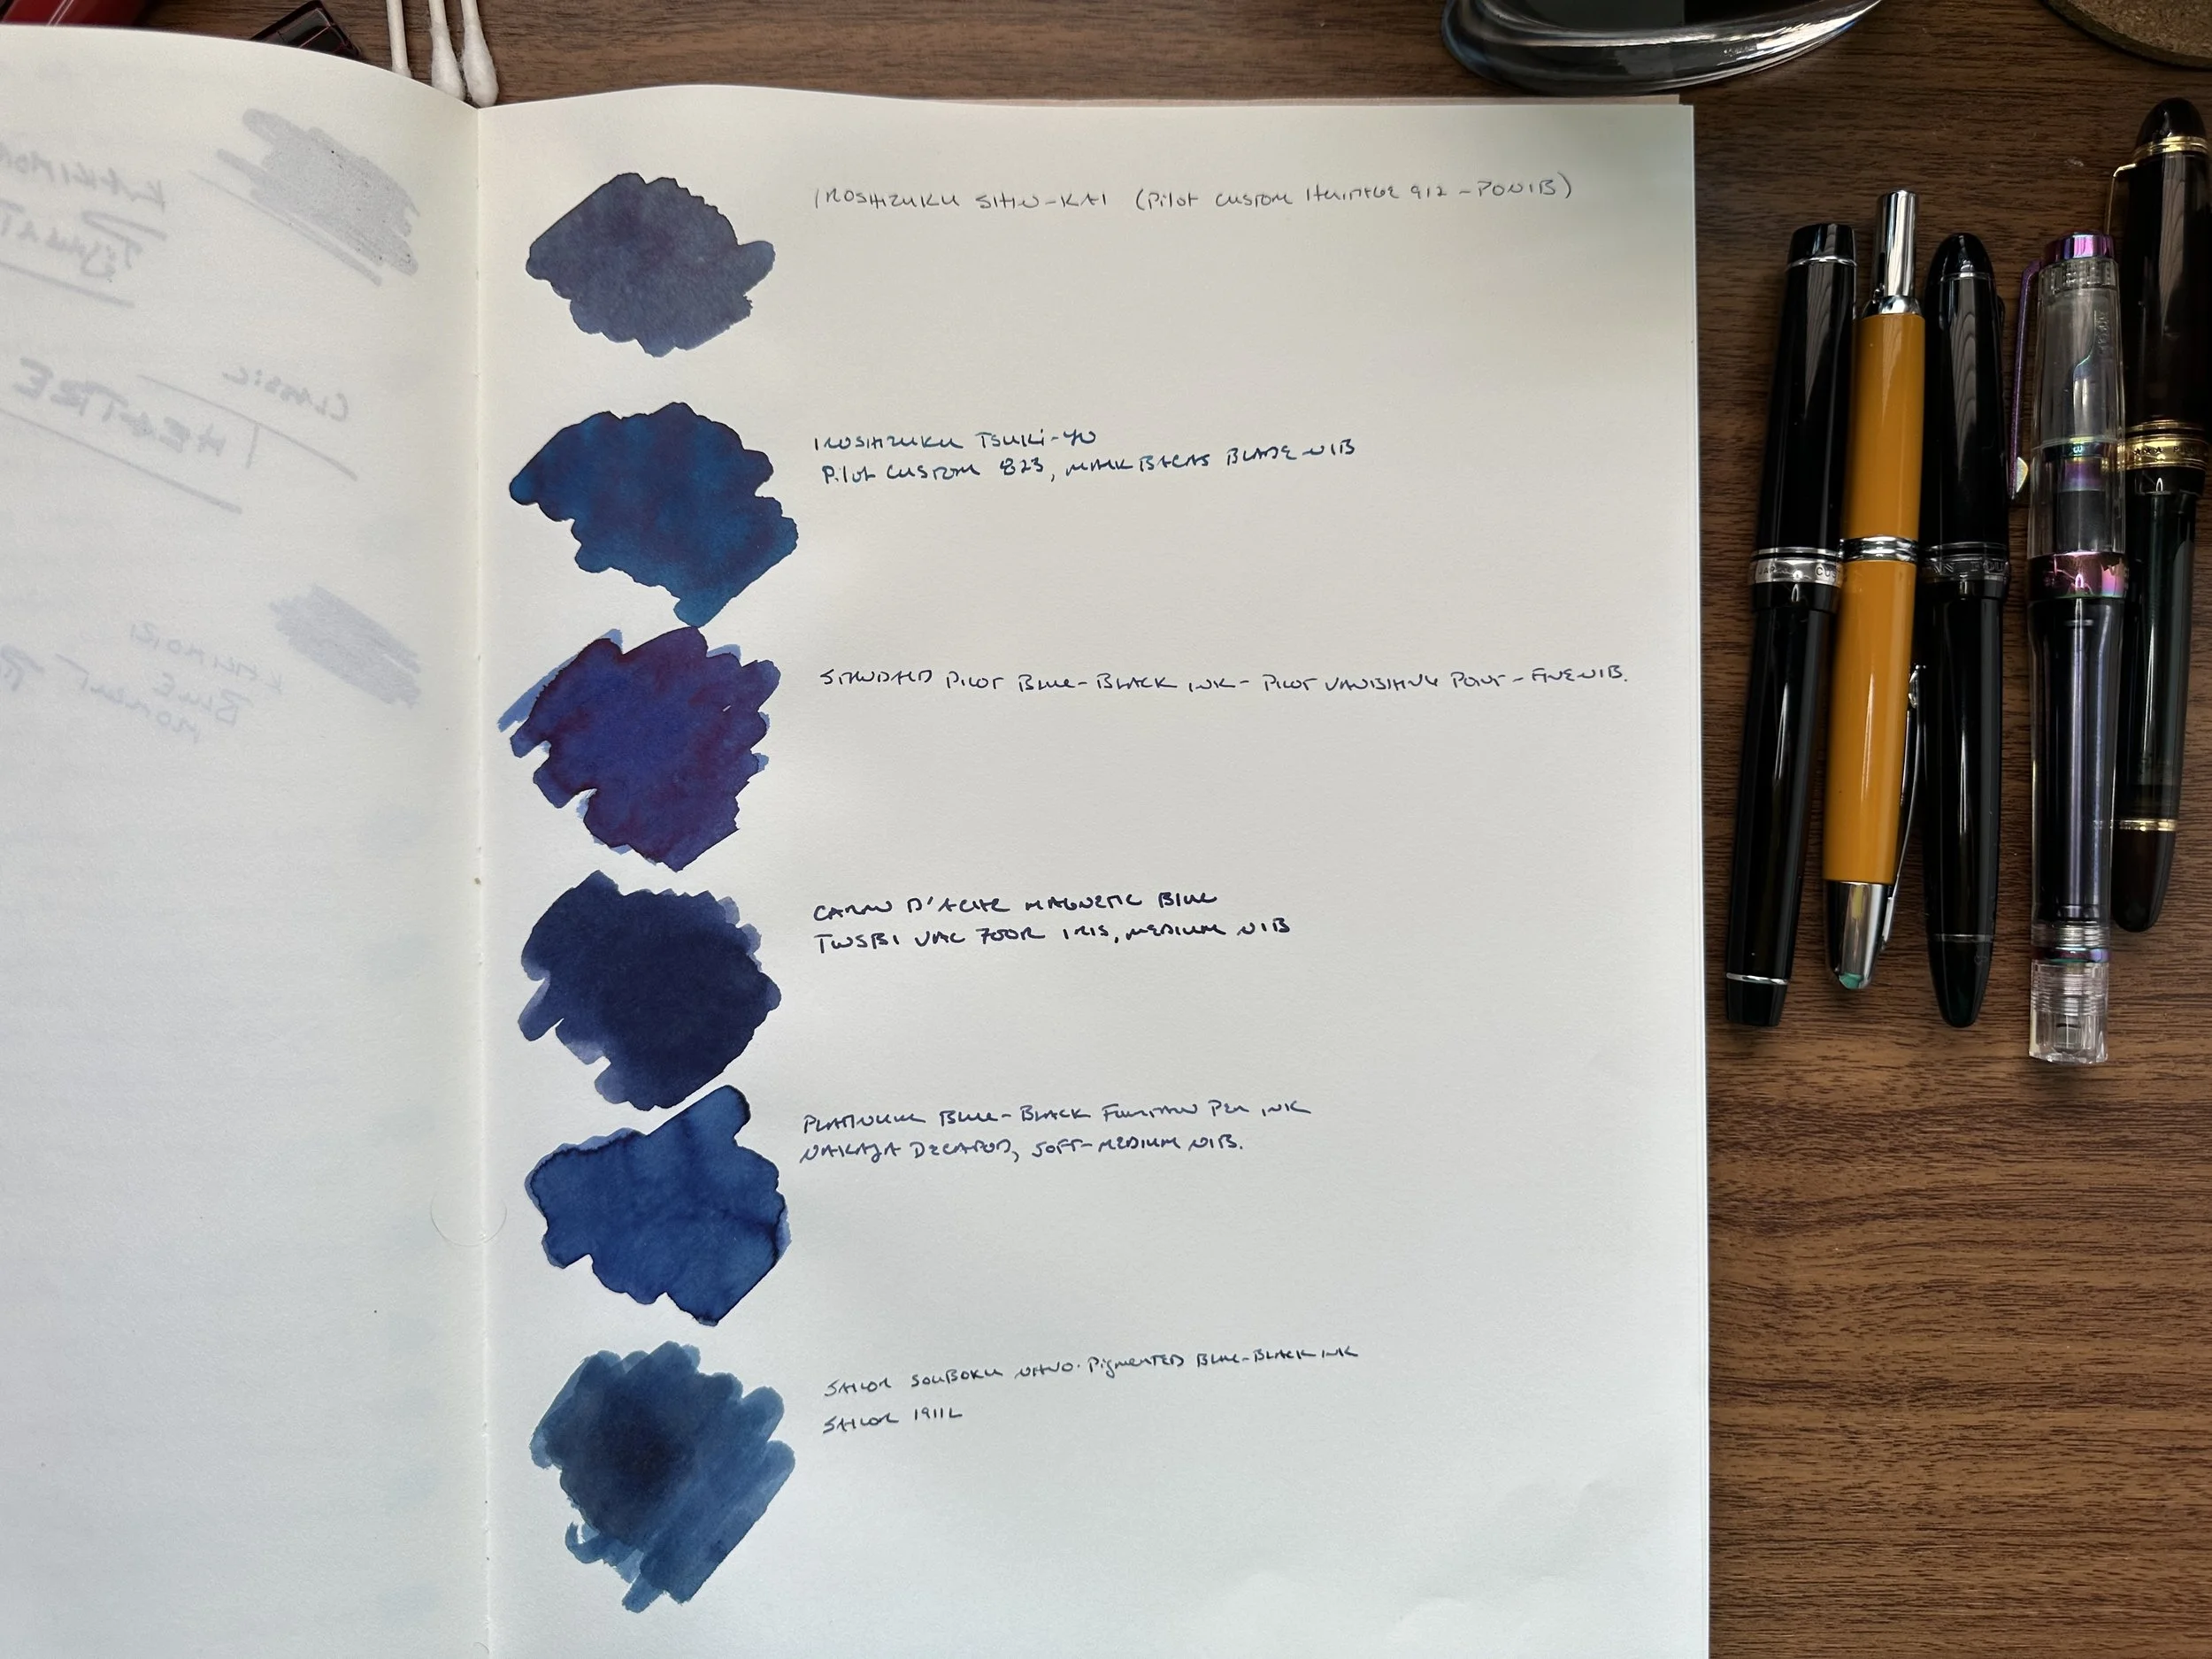 IROSHIZUKU SHIN-KAI (Pilot CUSTOM HERITAGE 912 - PO NIB)
IROSHIZUKU TSUKI-YO
Pilot CUSTOM 823, MARK BACAS BLADE NIB
STANDARD PILOT BLUE-BLACK INK - PILOT VANISHING POINT - FINE NIB.
CARAN D'ACHE MAGNETIC BLUE
TWSBI VAC 700R IRIS, MEDIUM NIB
PLATINUM BLUE-BLACK FOUNTAIN PEN INK
NAKAYA DECAPOD, SOFT-MEDIUM NIB.
SAILOR SOUBOKU NANO-PigMENTED BLUE-BLACK INK
SAILOR 1911L
CLASSIC
THEATRE
KAKIMORI
BLUE